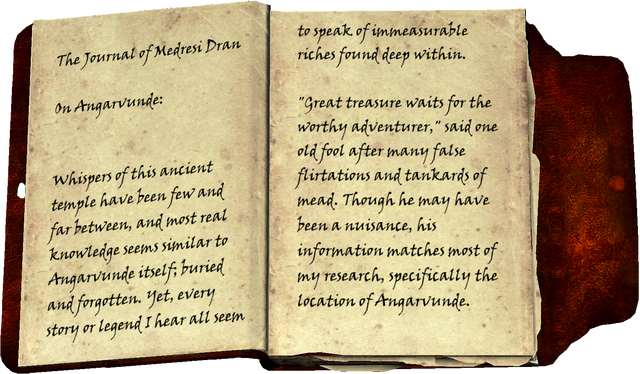 The Journal of Medresi Dran
On Angarvunde:
Whispers of this ancient
temple have been few and
far between, and most real
knowledge seems similar to
Angarvunde itself; buried
and forgotten. Yet, every
story or legend I hear all seem
to speak of immeasurable
riches found deep within.
"Great treasure waits for the
worthy adventurer," said one
old fool after many false
flirtations and tankards of
mead. Though he may have
been a nuisance, his
information matches most of
my research, specifically the
location of Angarvunde.